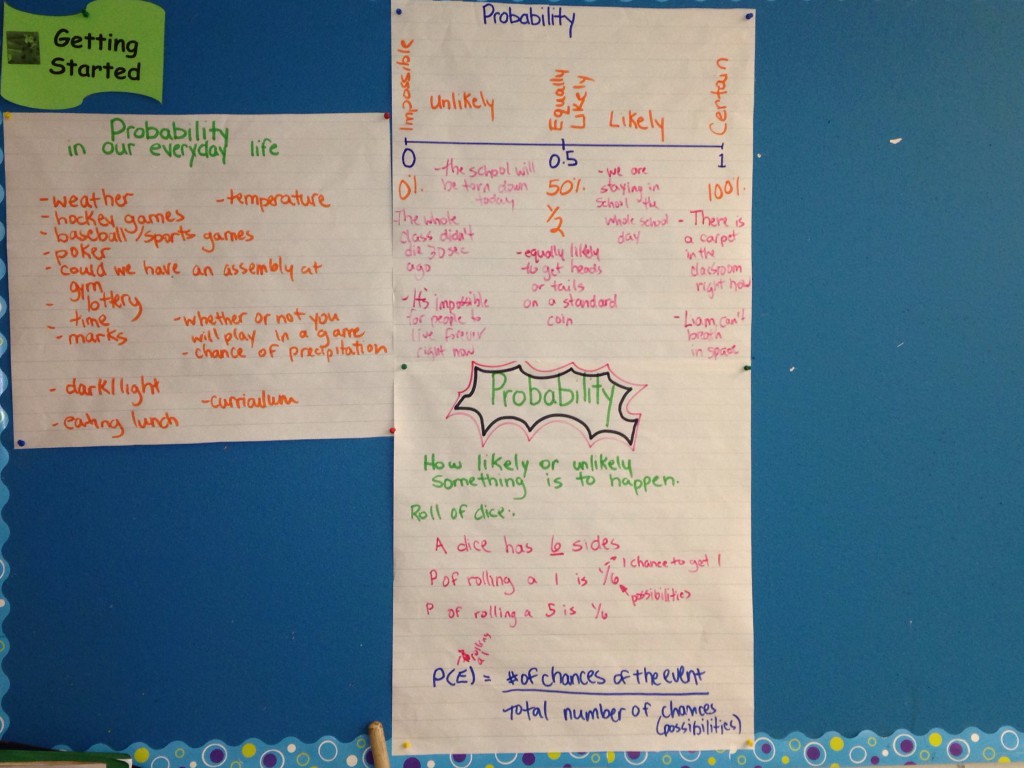 Getting
Started
Probability
in our everyday life
- weather
- temperature
- hockey games
- baseball/sports games
- poker
- could we have an assembly at
gym
- lottery
- time
- marks
- whether or not you
will play in a game
- chance of precipitation
- dark/light
- curriculum
- eating lunch
Probability
Impossible
Unlikely
Equally
Likely
Likely
Certain
0
0.5
1
0%
50%
100%
1/2
- The school will
be torn down
today
The whole
class didn't
die 30 sec
ago
- It's impossible
for people to
live forever
right now
- equally likely
to get heads
or tails
on a standard
coin
- we are
staying in
school the
whole school
day
- There is
a carpet
in the
classroom
right now
- Liam can't
breath
in space
Probability
How likely or unlikely
something is to happen.
Roll of dice:
A dice has 6 sides
P of rolling a 1 is 1/6
1 chance to get 1
possibilities
P of rolling a 5 is 1/6
rolling
a 1
P(E) = # of chances of the event
Total number of chances
(possibilities)